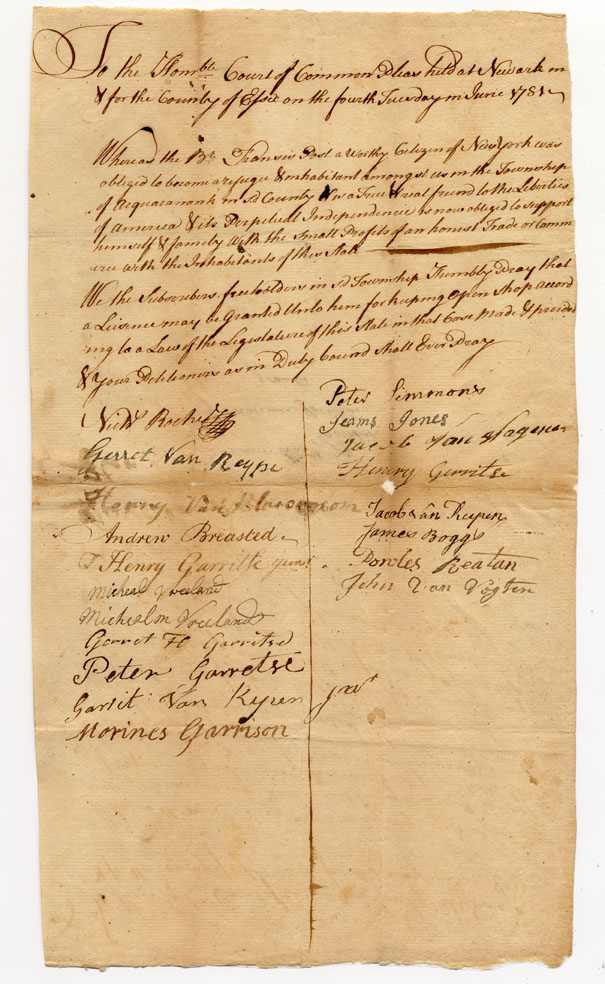 To the Honble Court of Common Pleas held at Newark in
& for the County of Essex on the fourth Tuesday in June 1781
Whereas the Br Fransis Post a worthy Citizen of New York was
obliged to become a refugee & inhabitant amongst us in the Township
of Acquacanonk in sd County & is a True & real friend to the Liberties
of America & its Perpetual Independence is now obliged to Support
himself & family With the Small Profits of an honest Trade or Comm
erce with the Inhabitants of this State
We the Subscribers freeholders in sd Township Humbly Pray that
a Lisence may be Granted Unto him for keeping Open Shop accord
ing to a Law of the Legislature of this State in that Case Made & provided
& Your Petitioners as in Duty bound Shall Ever Pray
Peter Simmons
Jeams Jones
Jacob Van Wagenen
Henry Gerritse
Jacob Van Reypen
James Boggs
Powles Reatan
John Van
Roche
Gerrot Van Reype
Henry Van
Andrew Breasted
Henry Garritse
Micheal Vreeland
Micheal m Vreeland
Garret H Garritse
Peter Garretse
Garrit Van Ryper junr
Morines Garrison